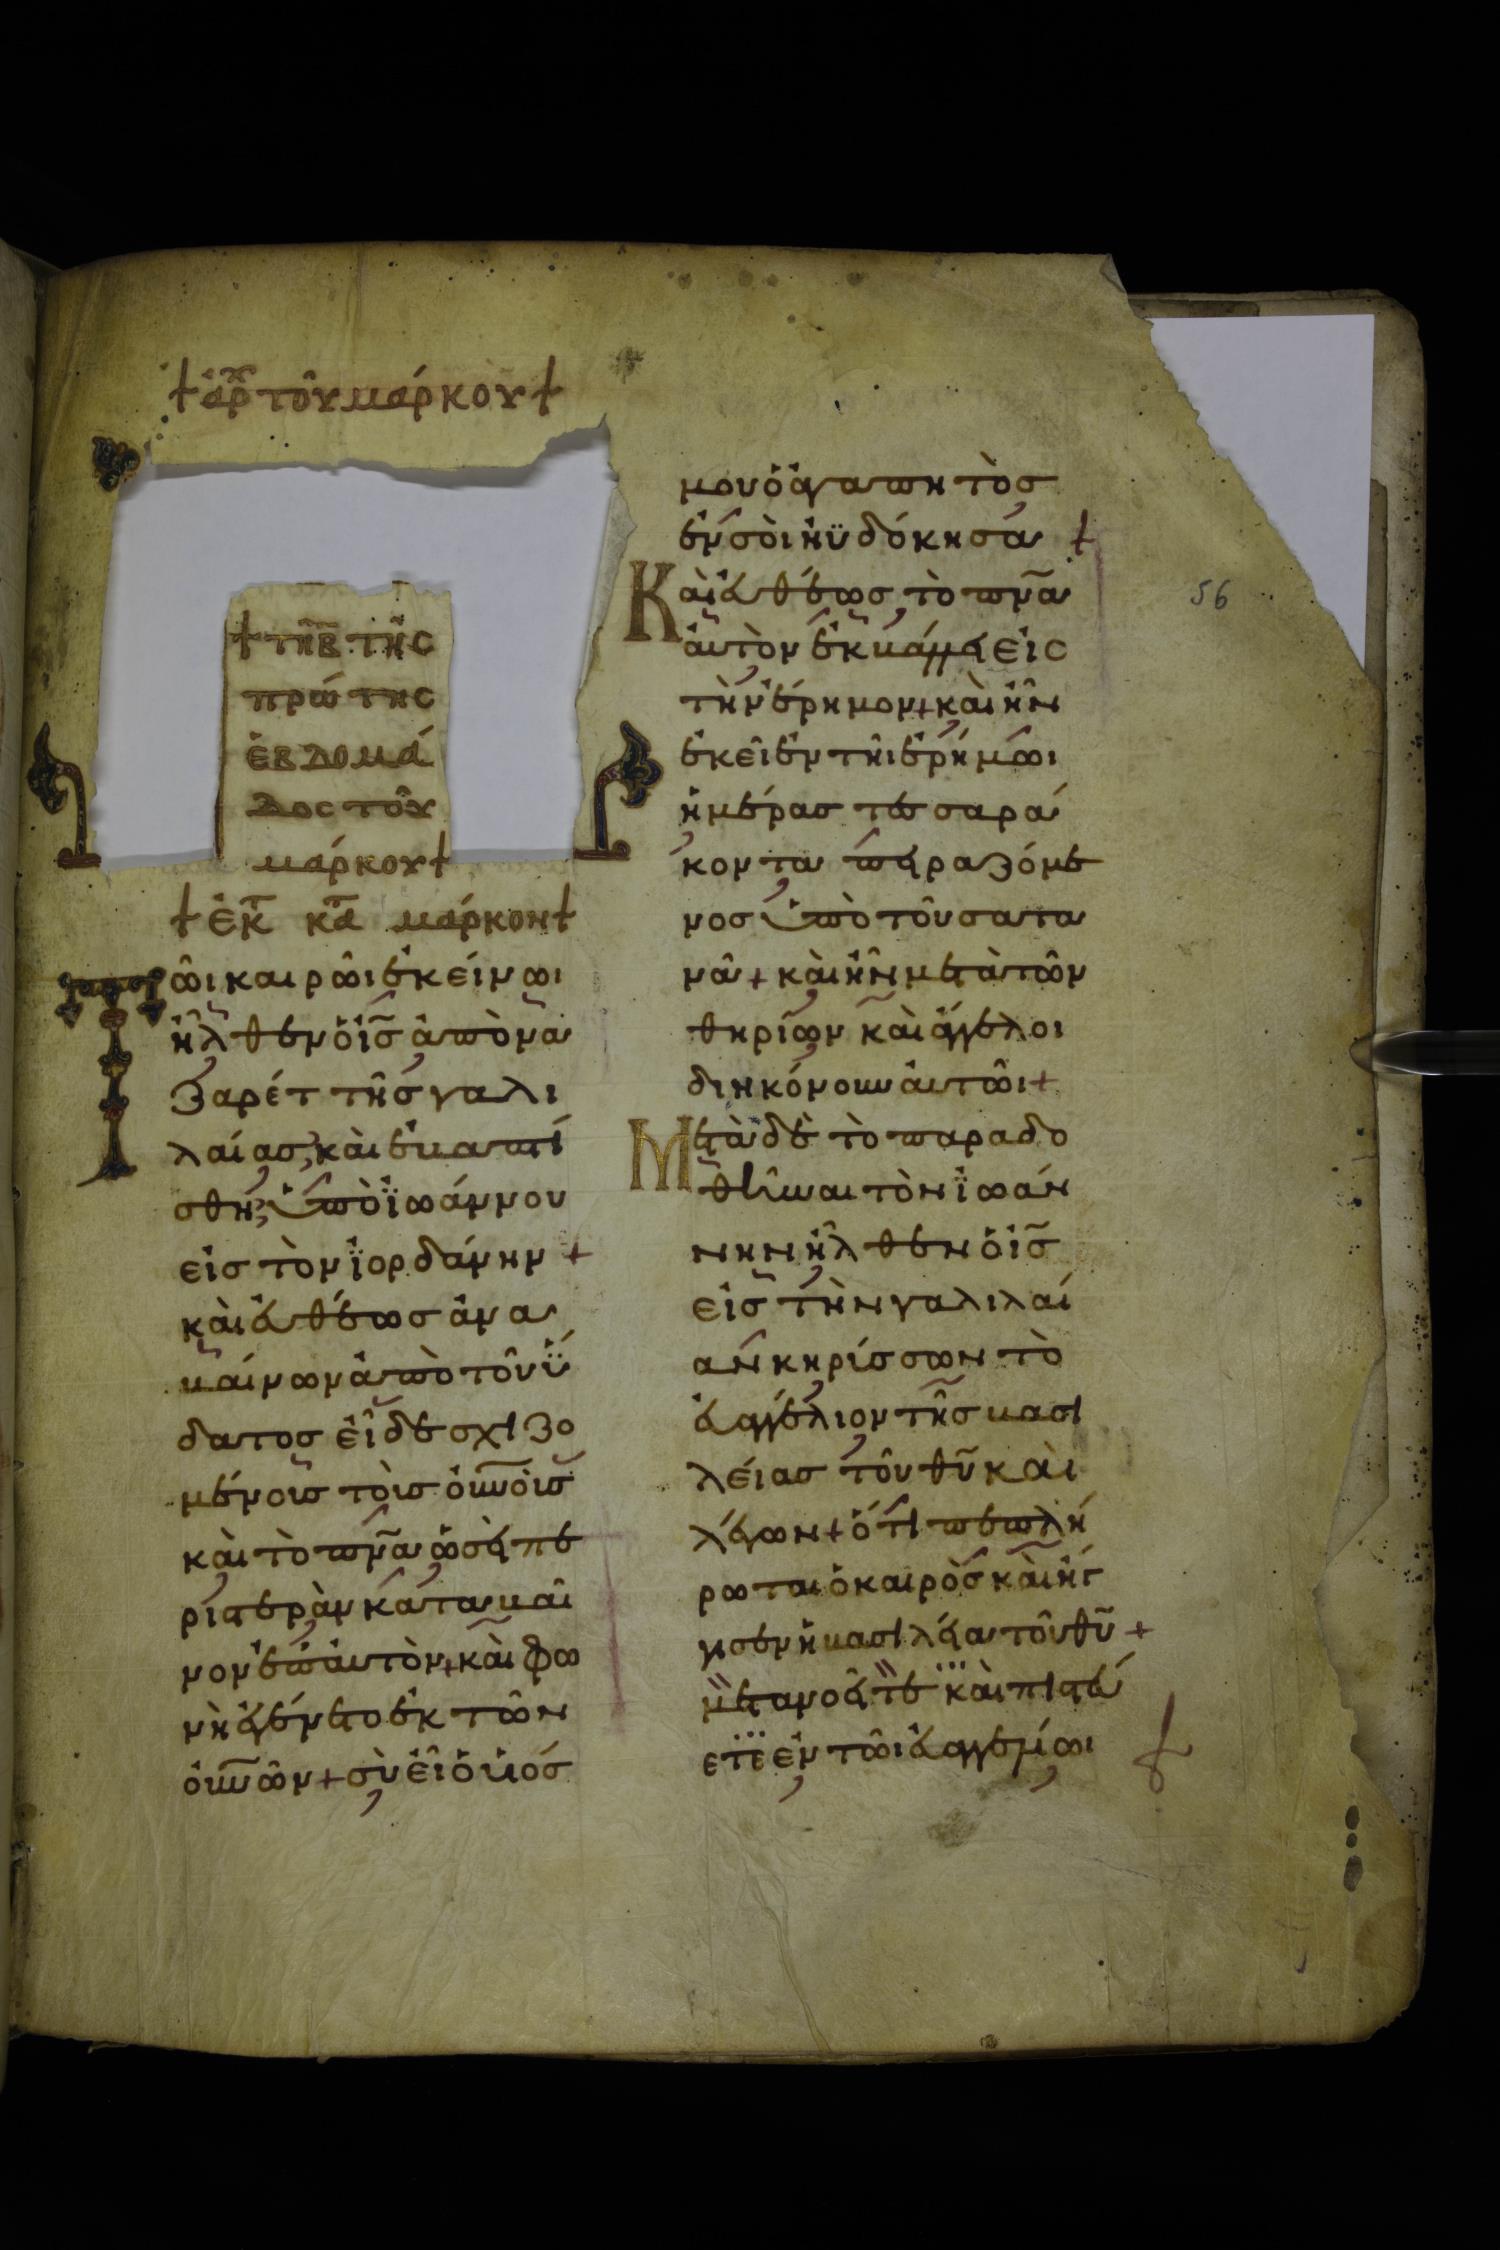 + ἀρχ τοῦ μάρκου +
+ τῆ β τῆς
πρώτης
ἑβδομά
δος τοῦ
μάρκου +
+ ἐκ κα τα μάρκον +
Τῶι καιρῶι ἐκείνωι
ἦλθεν ὁ ἰς ἀπὸ να
ζαρέτ τῆς γαλι
λαίας, καὶ ἐβαπτί
σθη, ὑπὸ ϊωάννου
εἰς τὸν ϊορδάνην +
καὶ εὐθέως ἀνα
βαίνων ἀπὸ τοῦ ὕ
δατος εἶδε σχιζο
μένους τοὺς οὐνοὺς
καὶ τὸ πνα ὡσεὶ πε
ριστερὰν καταβαῖ
νον ἐπ' αὐτὸν + καὶ φω
νὴ ἐγένετο ἐκ τῶν
οὐνῶν + σὺ εἶ ὁ υἱός
μου ὁ ἀγαπητὸς
ἐν σοὶ ηὐδόκησα +
Καὶ εὐθέως τὸ πνα
αὐτὸν ἐκβάλλει εἰς
τὴν ἔρημον + καὶ ἦν
ἐκεῖ ἐν τῆι ἐρήμωι
ἡμέρας τεσαρά
κοντα πειραζόμε
νος ὑπὸ τοῦ σατα
νᾶ + καὶ ἦν μετὰ τῶν
θηρίων καὶ ἄγγελοι
διηκόνουν αὐτῶι +
Μετὰ δὲ τὸ παραδο
θῆναι τὸν ϊωάν
νην ἦλθεν ὁ ἰς
εἰς τὴν γαλιλαί
αν κηρίσσων τὸ
εὐαγγέλιον τῆς βασι
λείας τοῦ θυ καὶ
λέγων + ὅτι πεπλή
ρωται ὁ καιρὸς καὶ ἤγ
γισεν ἡ βασιλεία τοῦ θυ +
μετανοεῖτε καὶ πιστεύ
ετε ἐν τῶι εὐαγγελίωι
56